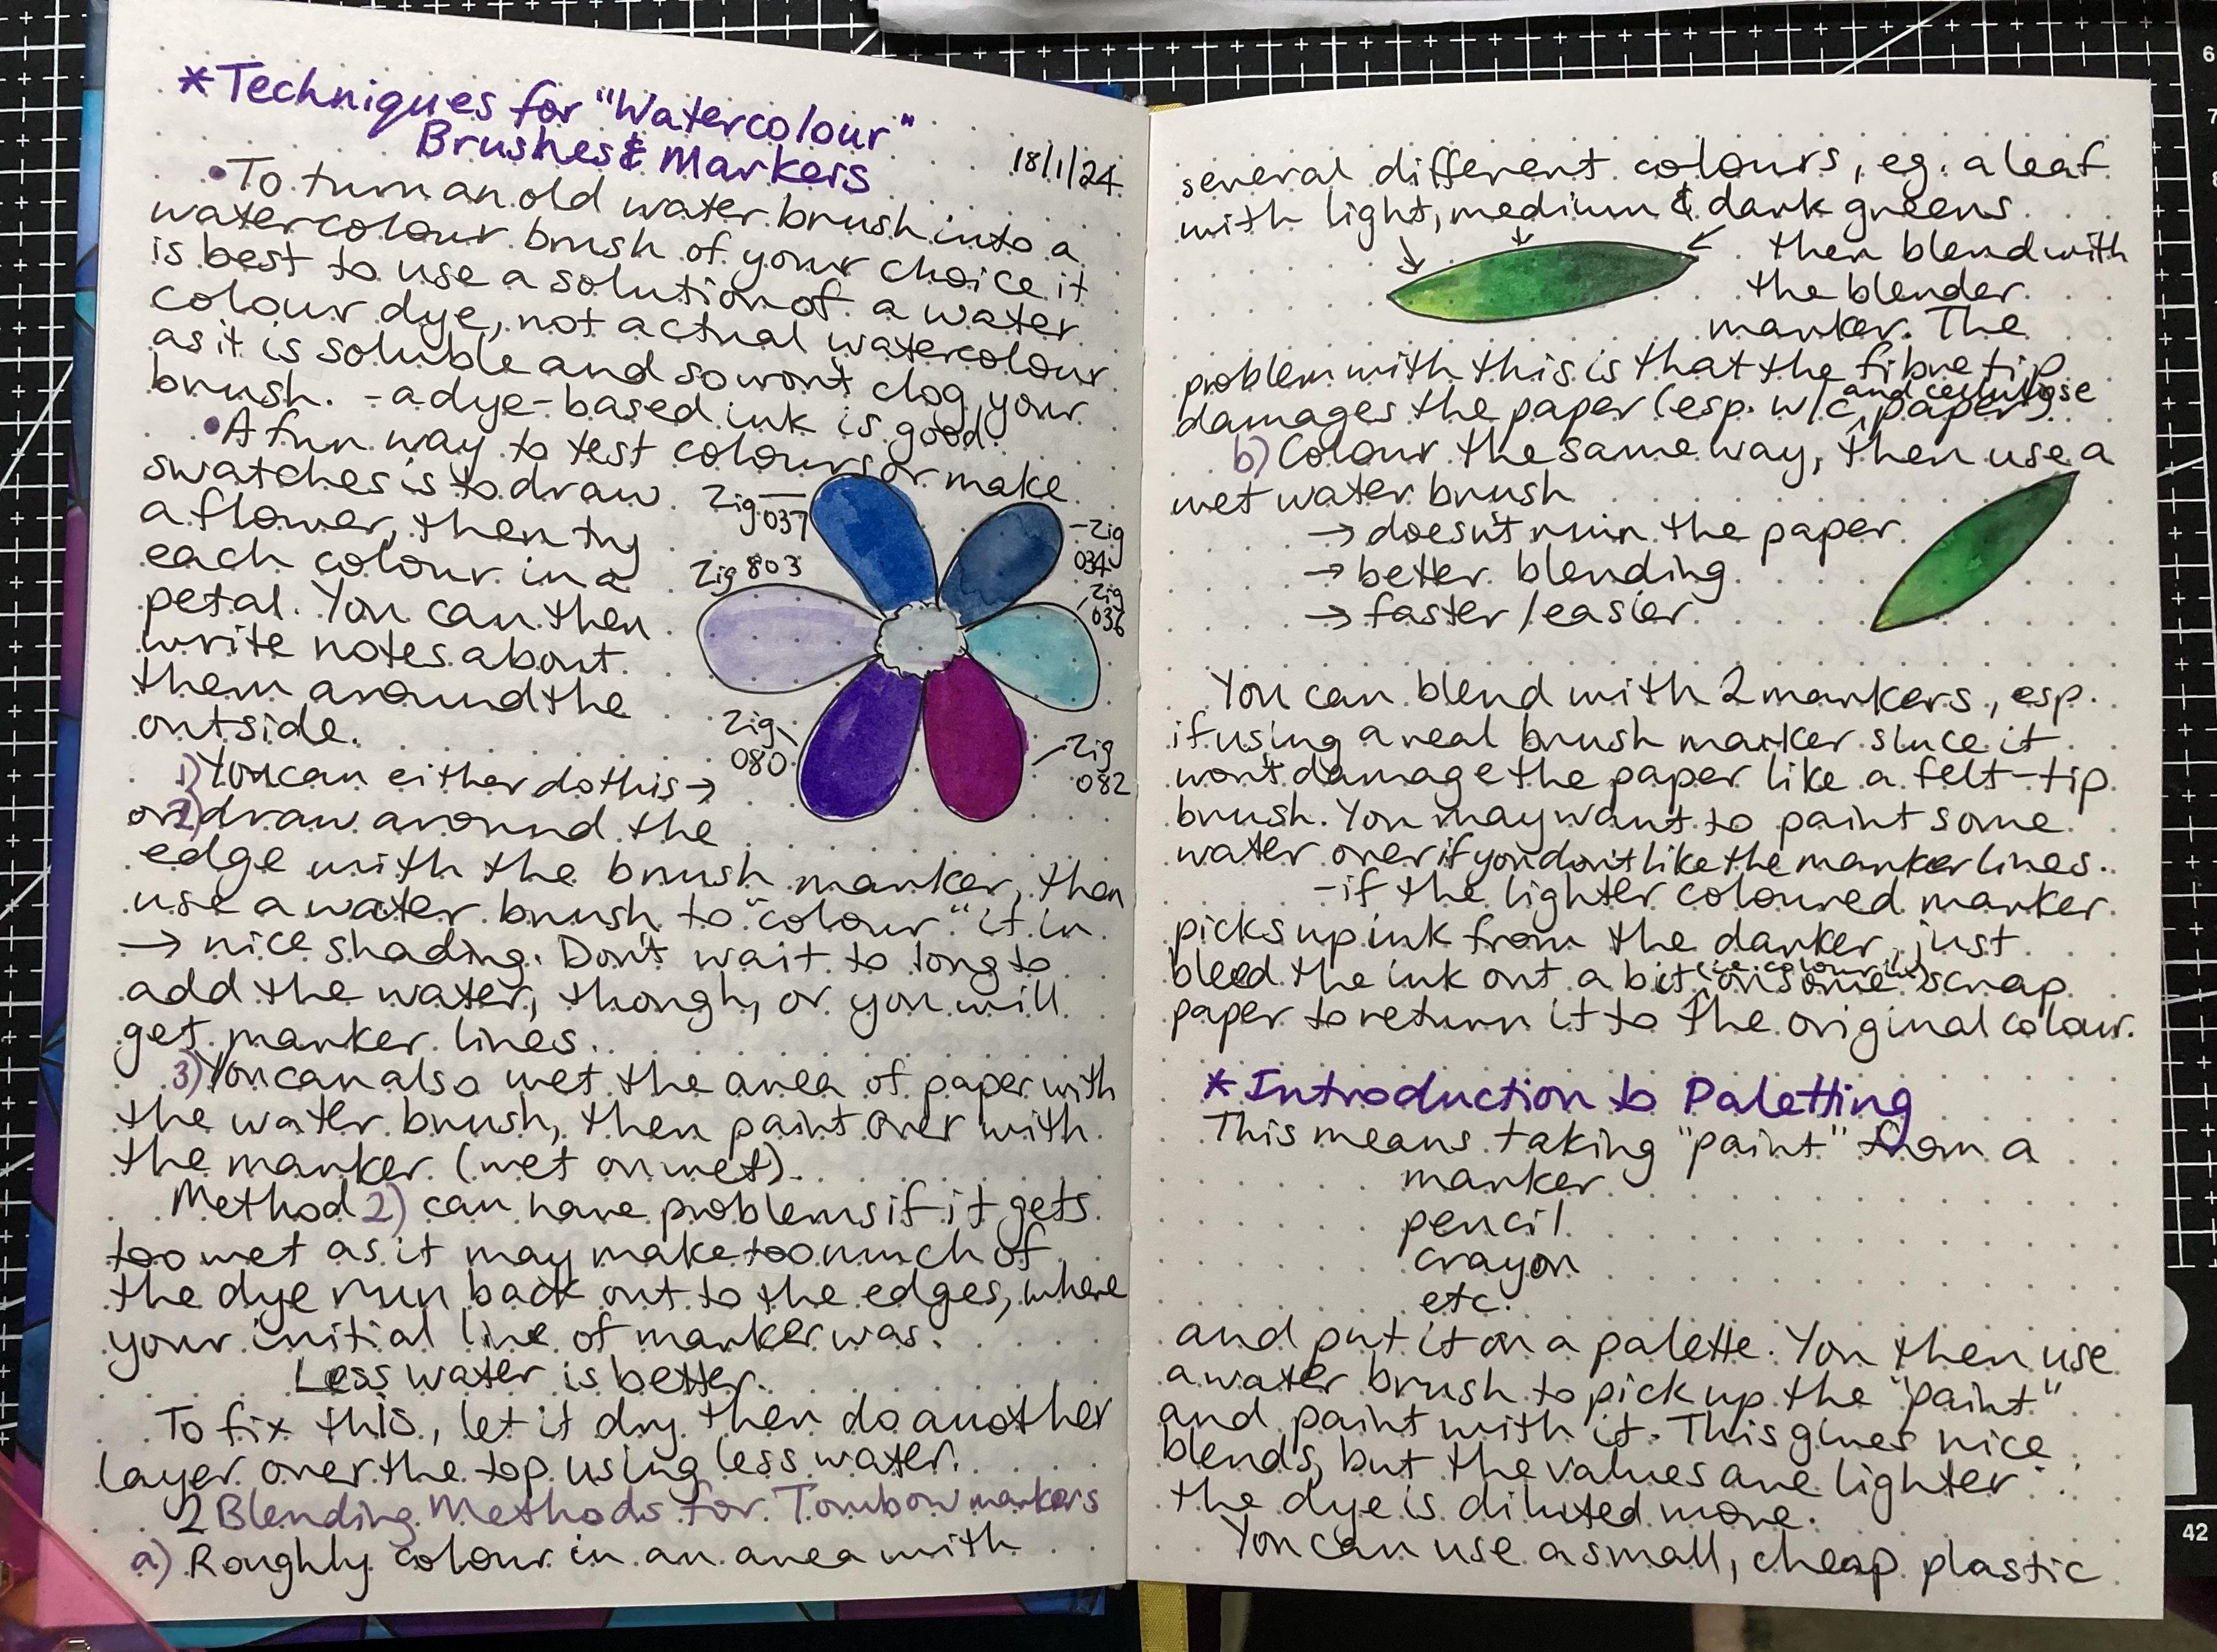 *Techniques for "Watercolour"
Brushes & Markers
18/1/24
•To turn an old water brush into a
watercolour brush of your choice it
is best to use a solution of a water
colour dye, not actual watercolour
as it is soluble and so won't clog your
brush. - a dye-based ink is good.
•A fun way to test colours or make
swatches is to draw
a flower, then try
each colour in a
petal. You can then
write notes about
them around the
outside.
Zig 037
Zig 034
Zig 803
Zig 036
Zig 080
Zig 082
1) You can either do this →
or 2) draw around the
edge with the brush marker, then
use a water brush to "colour" it in
→ nice shading. Don't wait to long to
add the water, though, or you will
get marker lines.
3) You can also wet the area of paper with
the water brush, then paint over with
the marker (wet on wet).
Method 2) can have problems if it gets
too wet as it may make too much of
the dye run back out to the edges, where
your initial line of marker was.
Less water is better.
To fix this, let it dry then do another
layer over the top using less water.
2 Blending Methods for Tombow markers
a) Roughly colour in an area with
several different colours, eg. a leaf
with light, medium & dark greens
then blend with
the blender
marker. The
problem with this is that the fibre tip
damages the paper (esp. w/c and cellulose paper).
b) Colour the same way, then use a
wet water brush
→ doesn't ruin the paper
→ better blending
→ faster/easier
You can blend with 2 markers, esp.
if using a real brush marker since it
won't damage the paper like a felt-tip
brush. You may want to paint some
water over if you don't like the marker lines.
- if the lighter coloured marker
picks up ink from the darker, just
bleed the ink out a bit (ie colour in) on some scrap
paper to return it to the original colour.
*Introduction to Paletting
This means taking "paint" from a
marker
pencil
crayon
etc.
and put it on a palette. You then use
a water brush to pick up the "paint"
and paint with it. This gives nice
blends, but the values are lighter ∵
the dye is diluted more.
You can use a small, cheap plastic
6
7
8
42